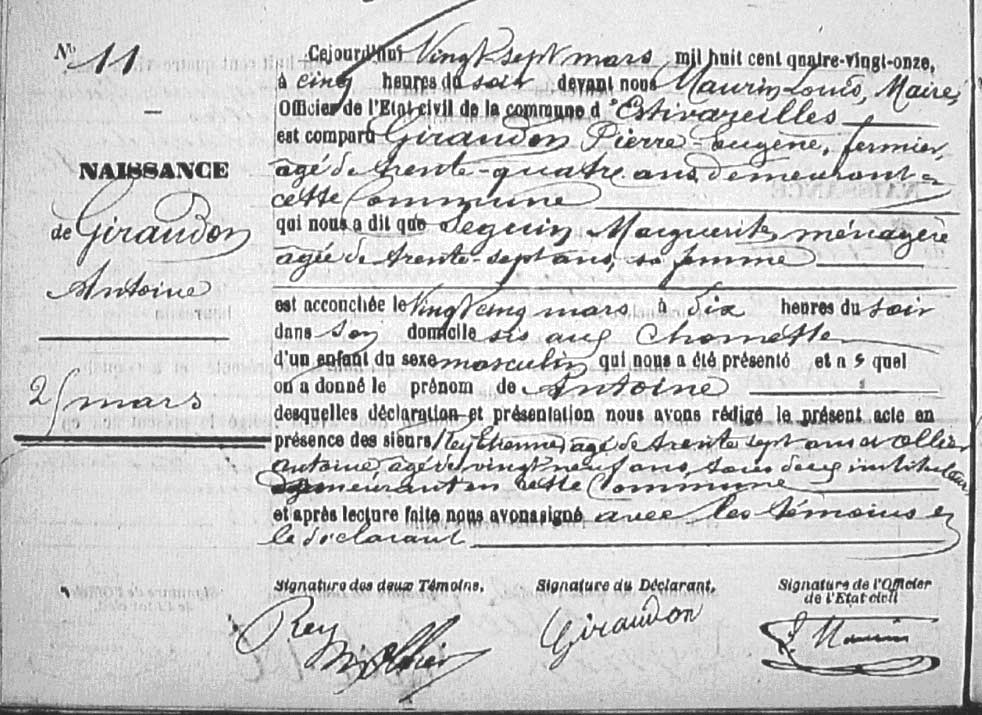 Nº 11
NAISSANCE
de Giraudon
Antoine
25 mars
Cejourd'hui Vingt-sept mars mil huit cent quatre-vingt-onze,
à cinq heures du soir devant nous Maurin Louis, Maire,
Officier de l'Etat civil de la commune d'Estivareilles
est comparu Giraudon Pierre-Eugène, fermier,
agé de trente-quatre ans, demeurant en
cette Commune
qui nous a dit que Seguin Marguerite, ménagère
agée de trente-sept ans, sa femme
est accouchée le Vingt cinq mars à dix heures du soir
dans son domicile sis aux Chomette
d'un enfant du sexe masculin qui nous a été présenté et auquel
on a donné le prénom de Antoine
desquelles déclaration et présentation nous avons rédigé le présent acte en
présence des sieurs Rey Etienne, agé de trente sept ans et Ollier
Antoine, agé de vingt neuf ans, tous deux instituteurs
demeurant en cette Commune
et après lecture faite nous avons signé avec les témoins et
le déclarant
Signature des deux Témoins, Signature du Déclarant, Signature de l'Officier
de l'Etat civil
Rey Giraudon L. Maurin
Ollier